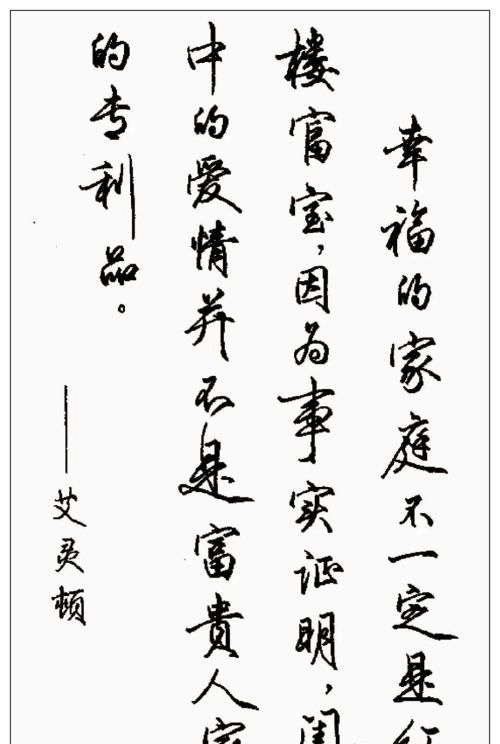 幸福的家庭不一定是
楼富室，因为事实证明，
中的爱情并不是富贵人
的专利品。
——艾灵顿